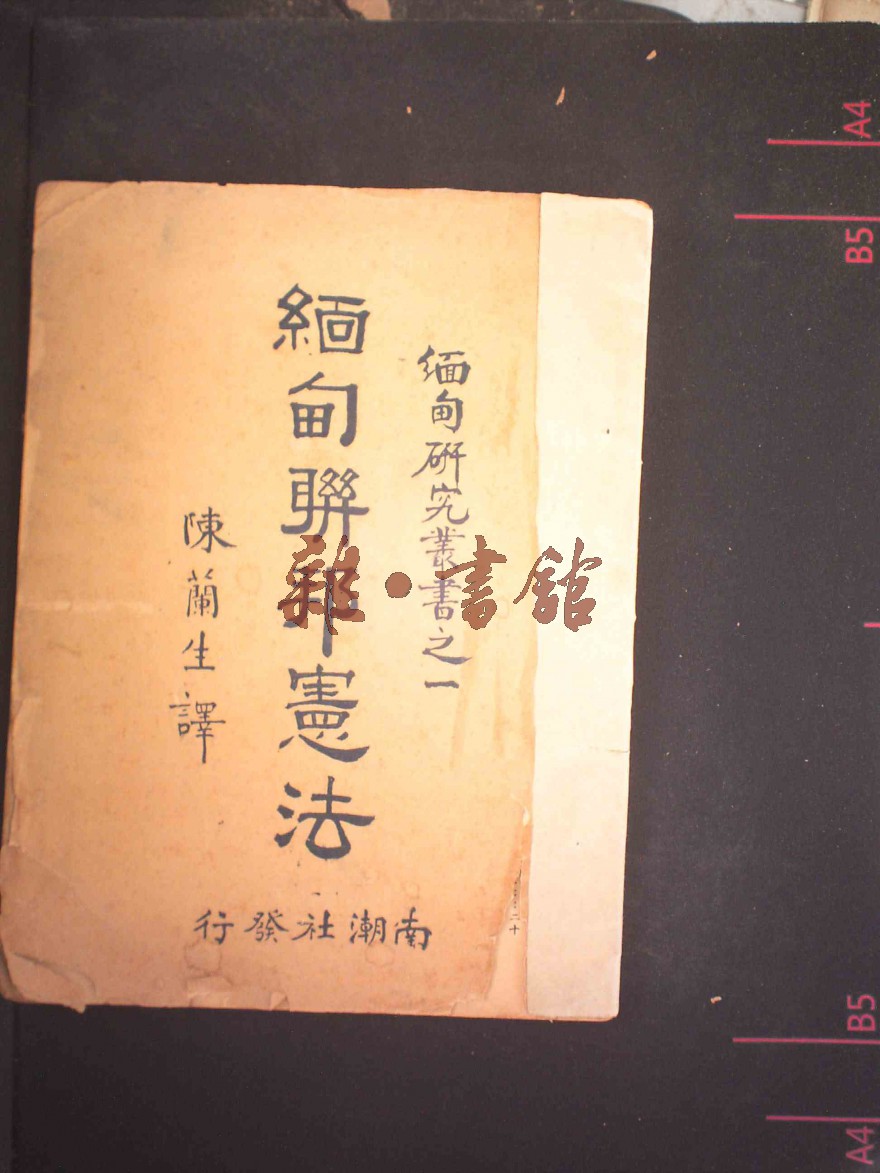 緬甸研究叢書之一
緬甸聯邦憲法
陳蘭生譯
南潮社發行
二十
雜·書館
A4
B5
B5
A4